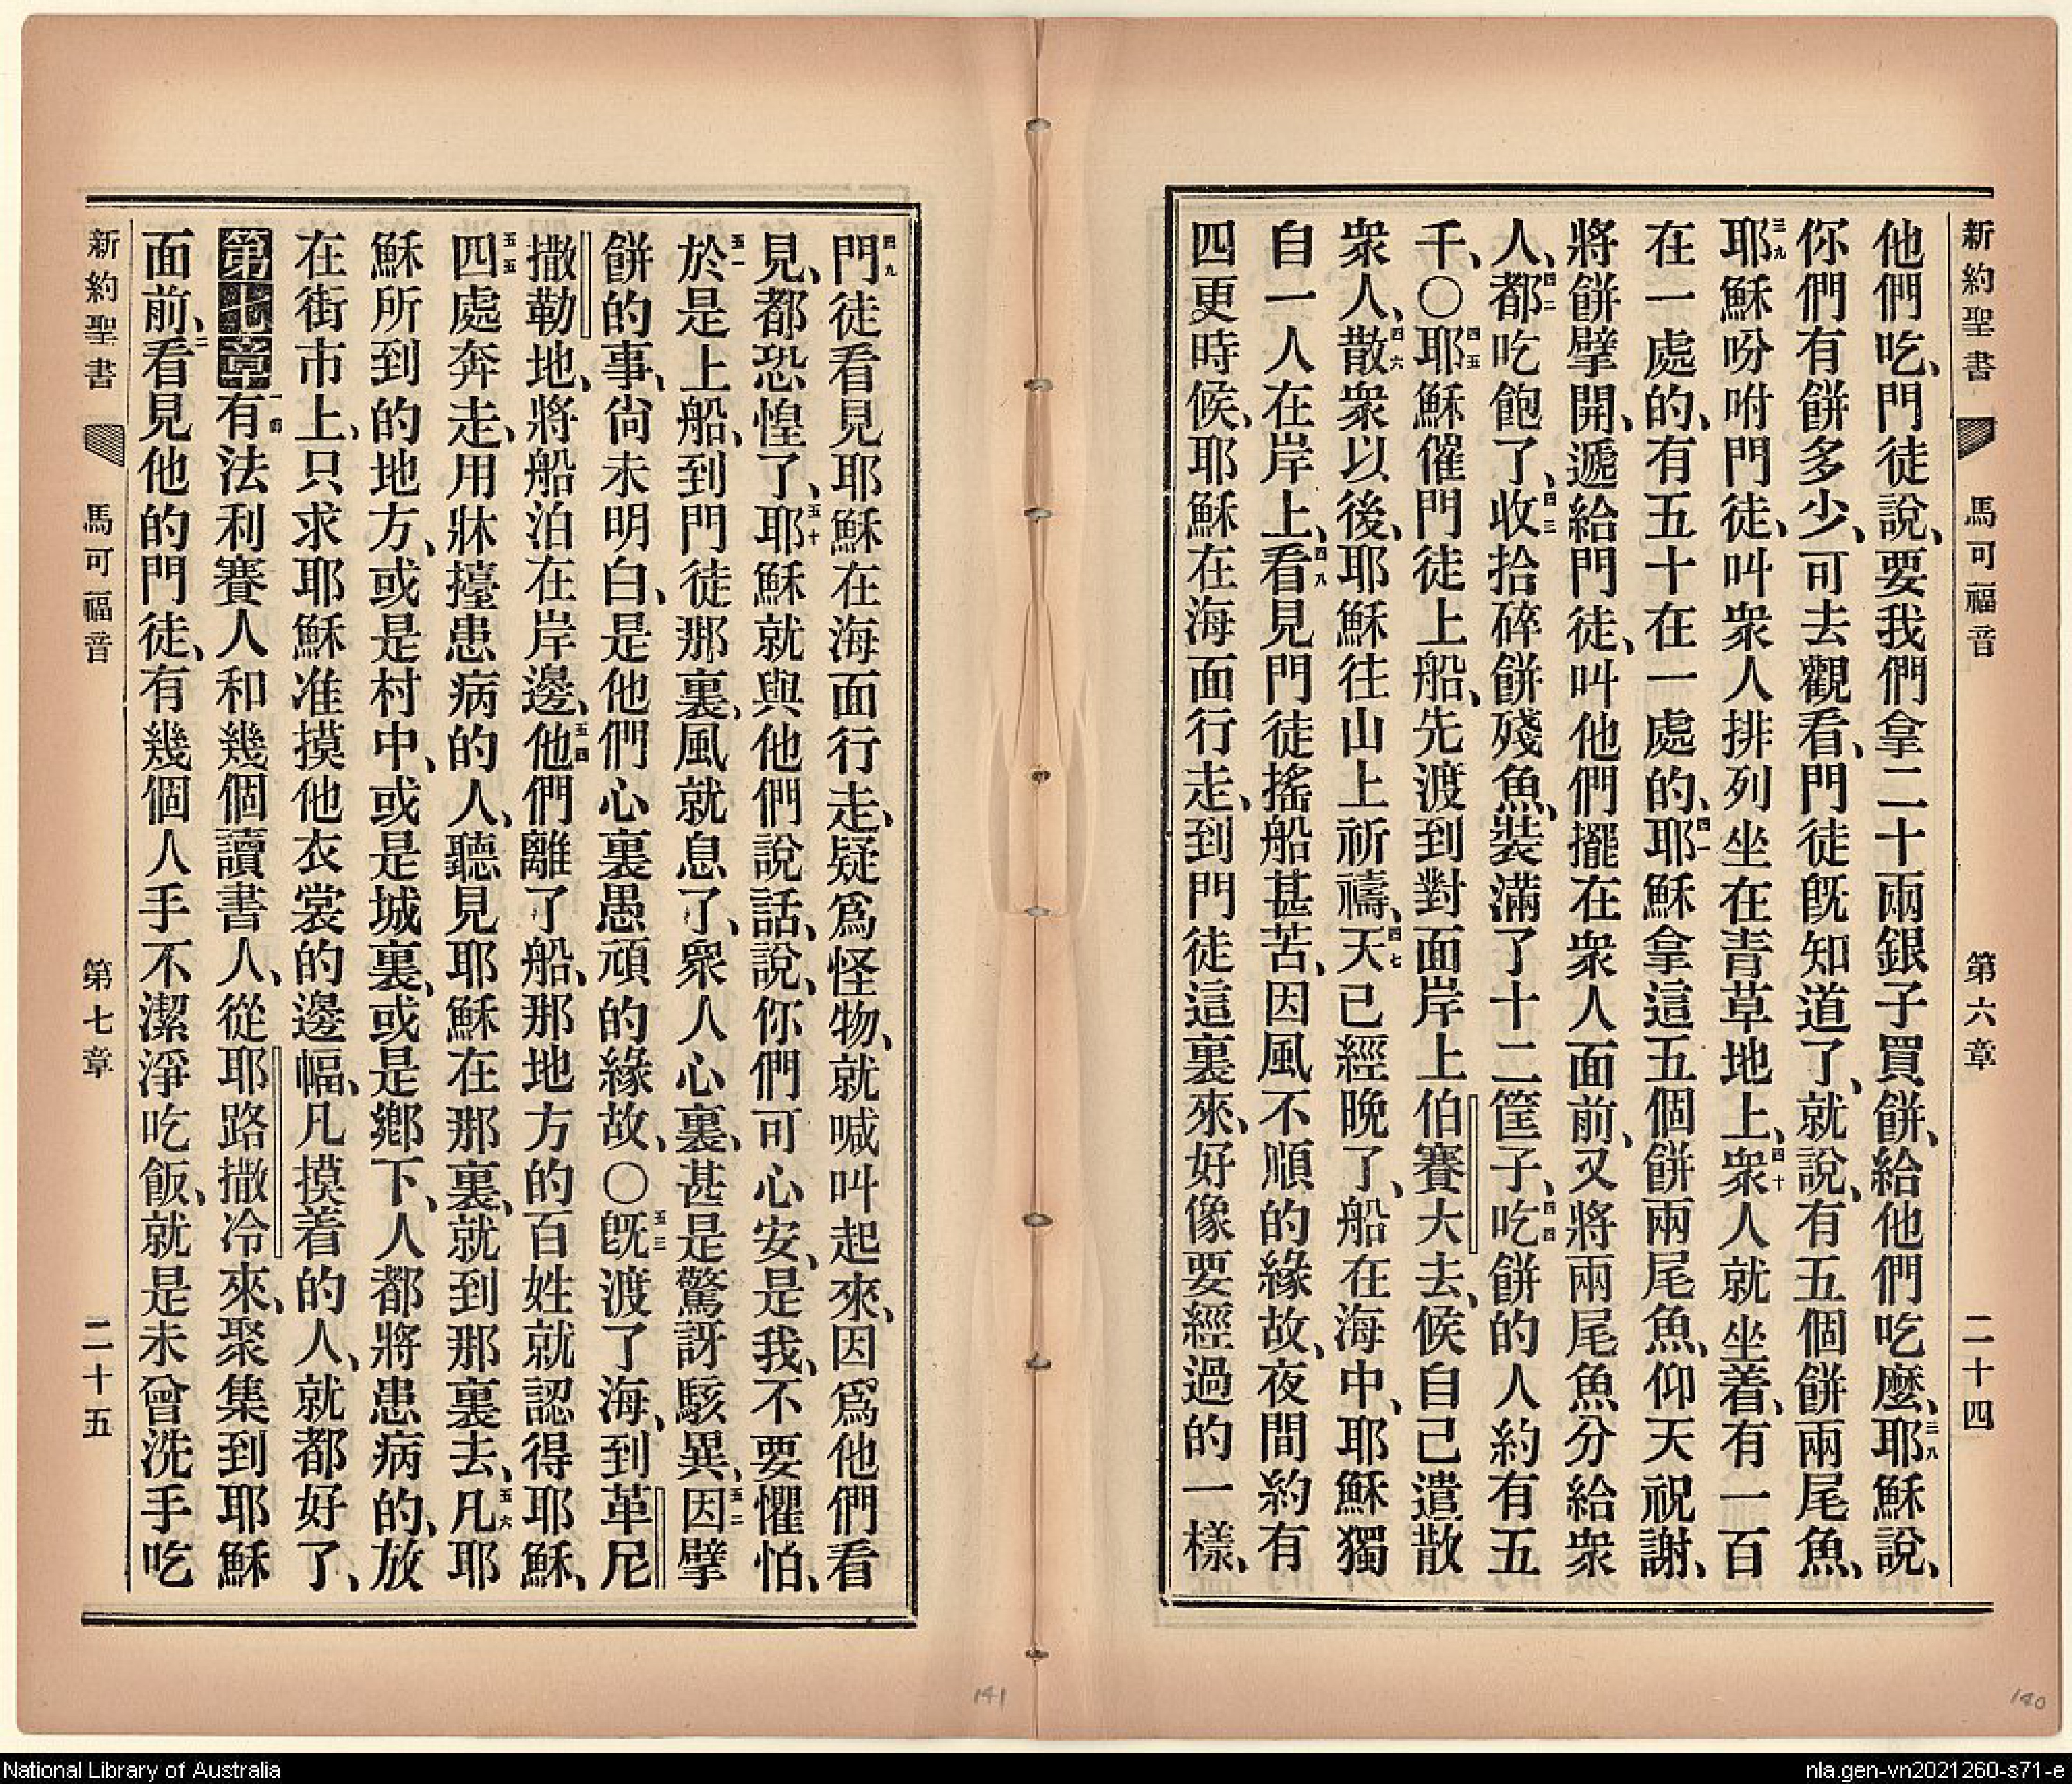 新約聖書 馬可福音 第六章 二十四
他們吃、門徒說、要我們拿二十兩銀子買餅、給他們吃麼、三八耶穌說、
你們有餅多少、可去觀看、門徒旣知道了、就說、有五個餅兩尾魚、
三九耶穌吩咐門徒、叫衆人排列坐在青草地上、四十衆人就坐着、有一百
在一處的、有五十在一處的、四一耶穌拿這五個餅兩尾魚、仰天祝謝、
將餅擘開、遞給門徒、叫他們擺在衆人面前、又將兩尾魚分給衆
人、四二都吃飽了、四三收拾碎餅殘魚、裝滿了十二筐子、四四吃餅的人約有五
千、〇四五耶穌催門徒上船、先渡到對面岸上伯賽大去、候自己遣散
衆人、四六散衆以後、耶穌往山上祈禱、四七天已經晚了、船在海中、耶穌獨
自一人在岸上、四八看見門徒搖船甚苦、因風不順的緣故、夜間約有
四更時候、耶穌在海面行走、到門徒這裏來、好像要經過的一樣、
四九門徒看見耶穌在海面行走、疑爲怪物、就喊叫起來、因爲他們看
見、都恐惶了、五十耶穌就與他們說話、說、你們可心安、是我、不要懼怕、
五一於是上船、到門徒那裏、風就息了、衆人心裏、甚是驚訝駭異、五二因擘
餅的事、尙未明白、是他們心裏愚頑的緣故、〇五三旣渡了海、到革尼
撒勒地、將船泊在岸邊、五四他們離了船、那地方的百姓就認得耶穌、
五五四處奔走、用牀擡患病的人、聽見耶穌在那裏、就到那裏去、五六凡耶
穌所到的地方、或是村中、或是城裏、或是鄉下、人都將患病的、放
在街市上、只求耶穌准摸他衣裳的邊幅、凡摸着的人、就都好了、
第七章 一節有法利賽人和幾個讀書人、從耶路撒冷來、聚集到耶穌
面前、二看見他的門徒、有幾個人手不潔淨吃飯、就是未曾洗手吃
新約聖書 馬可福音 第七章 二十五
141
140
National Library of Australia
nla.gen-vn2021260-s71-e